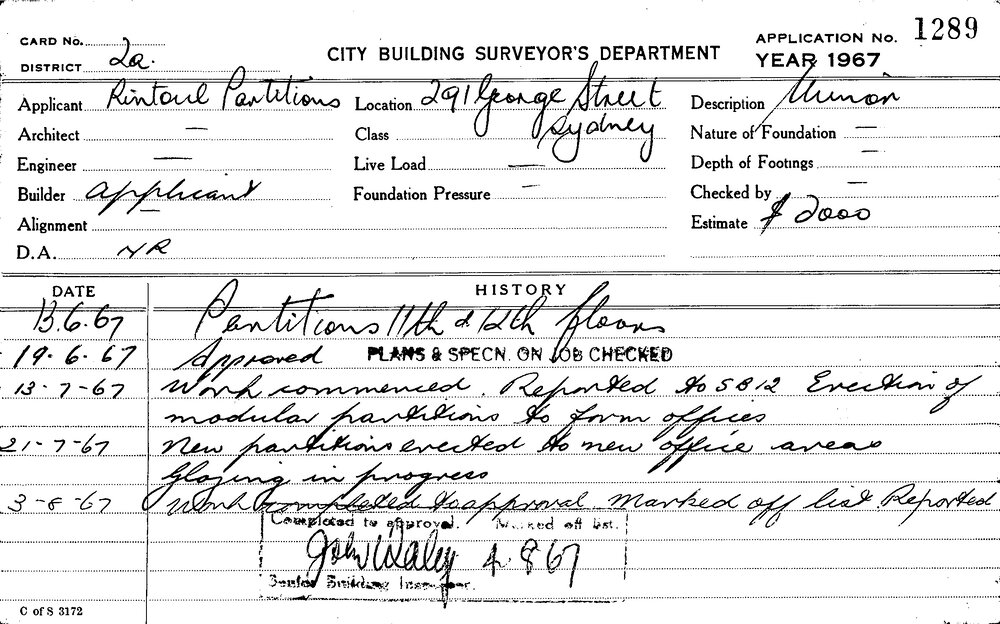 CARD No.
DISTRICT 2a.
CITY BUILDING SURVEYOR'S DEPARTMENT
APPLICATION No. 1289
YEAR 1967
Applicant Rintoul Partitions
Architect —
Engineer —
Builder applicant
Alignment —
D.A. NR
Location 291 George Street
Sydney
Class
Live Load —
Foundation Pressure —
Description Minor
Nature of Foundation —
Depth of Footings —
Checked by —
Estimate $ 2000
DATE HISTORY
13.6.67 Partitions 11th & 12th floors
19-6-67 Approved PLANS & SPECN. ON JOB CHECKED
13-7-67 Work commenced. Reported to SB12 Erection of
modular partitions to form offices
21-7-67 New partitions erected to new office areas
Glazing in progress
3-8-67 Work completed to approval Marked off list. Reported
Completed to approval. Marked off list.
John Daley 4.8.67
Senior Building Inspector.
C of S 3172